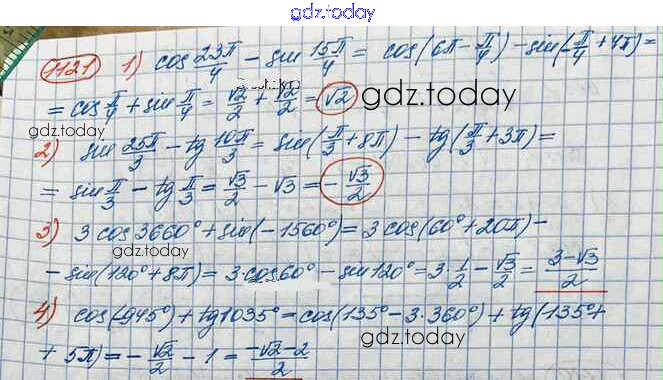 gdz.today
1121 1) cos 23π/4 - sin 15π/4 = cos(6π - π/4) - sin(-π/4 + 4π) =
= cos π/4 + sin π/4 = √2/2 + √2/2 = √2 gdz.today
gdz.today
2) sin 25π/3 - tg 10π/3 = sin(π/3 + 8π) - tg(π/3 + 3π) =
= sin π/3 - tg π/3 = √3/2 - √3 = -√3/2
3) 3 cos 3660° + sin(-1560°) = 3 cos(60° + 20π) -
gdz.today
- sin(120° + 8π) = 3·cos 60° - sin 120° = 3·1/2 - √3/2 = 3-√3/2
4) cos(-945°) + tg 1035° = cos(135° - 3·360°) + tg(135° +
gdz.today
+ 5π) = -√2/2 - 1 = -√2-2/2